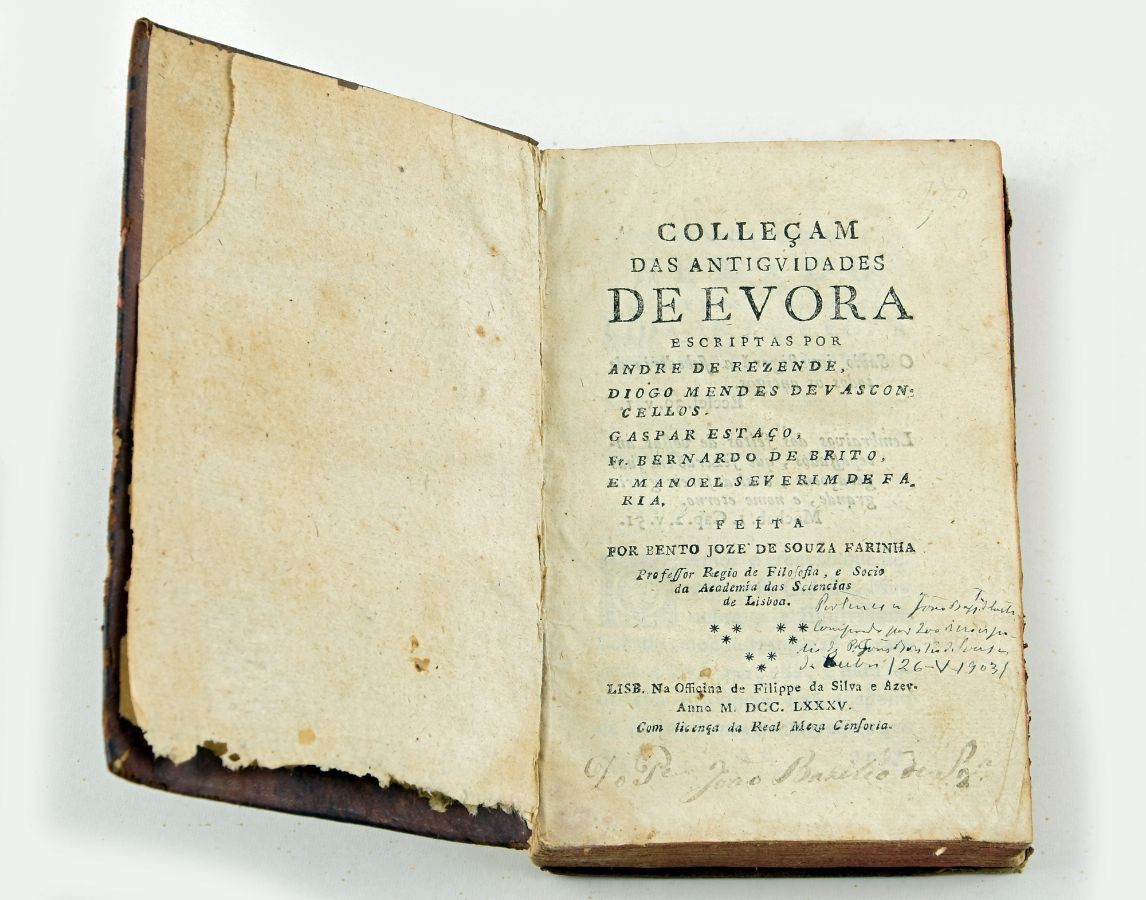 COLLEÇAM
DAS ANTIGVIDADES
DE EVORA
ESCRIPTAS POR
ANDRE DE REZENDE,
DIOGO MENDES DE VASCON-
CELLOS.
GASPAR ESTAÇO,
Fr. BERNARDO DE BRITO,
E MANOEL SEVERIM DE FA-
RIA,
FEITA
POR BENTO JOZE' DE SOUZA FARINHA
Professor Regio de Filosofia, e Socio
da Academia das Sciencias
de Lisboa.
Pertence a João
Comprado por 200
de
de /26-V-1903/
LISB. Na Officina de Filippe da Silva e Azev.
Anno M. DCC. LXXXV.
Com licença da Real Meza Censoria.
Do Pe João Bazilio de